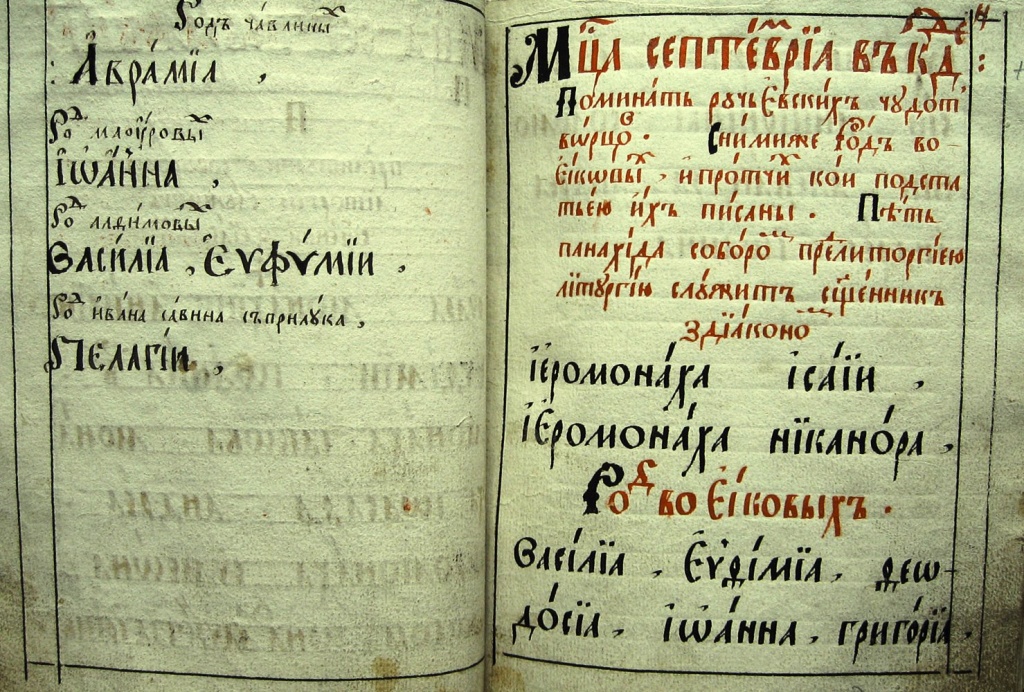 Родъ чавлины
Авра́мїа ,
Ро́д маѹровы
Іѡа́нна ,
Ро́д
Васи́лїа , Еѵфѵ́мїи .
Ро́д ива́на са́вина съприлука ,
Пелагі́и ,
Мц҃а септе́врїа въ к҃д :
Помина́ть ручьевскихъ чудот
во́рцо . Сни́миже ро́дъ во
еиковы , и про́тчи кои подста
тьею и́хъ писаны . Пѣ́ть
панахі́да собо́ро прелиторгі́ею
літургі́ю слу́житъ сщ҃е́нникъ
здїа́коно
іеромона́ха ісаі́и ,
іеромона́ха нїкано́ра ,
Ро́д во Еіковыхъ .
Васі́лїа , Еѵді́мїа , ѳеѡ-
до́сїа , іѡа́нна , григо́рїа .